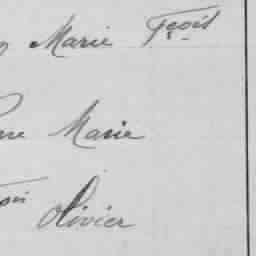 Marie Fçois
Marie
Olivier